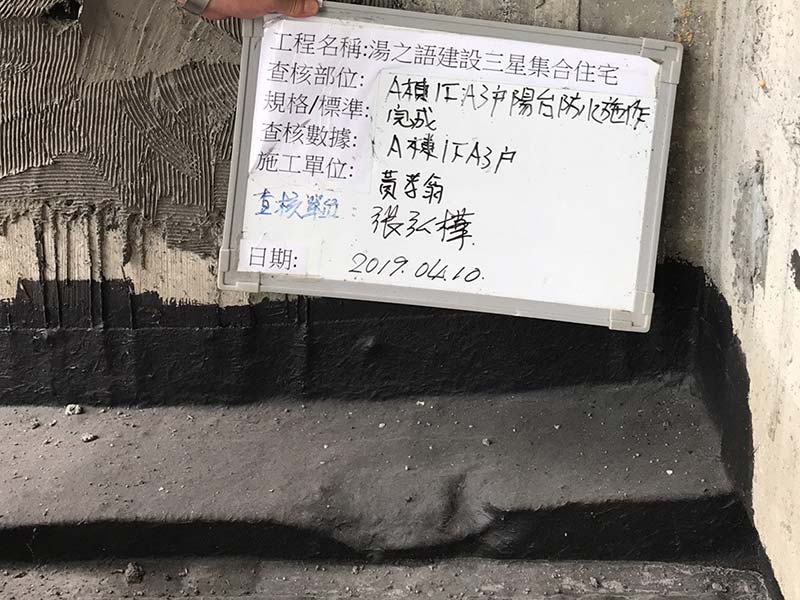 工程名稱:湯之語建設三星集合住宅
查核部位: A棟1F:A3戶陽台防水施作
規格/標準: 完成
查核數據: A棟1FA3戶
施工單位: 黃孝翁
查核單位: 張弘樺
日期: 2019.04.10.